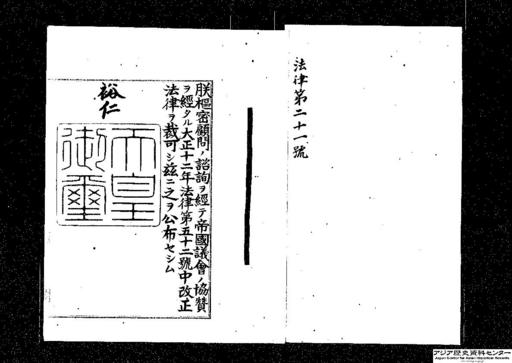 法律第二十一號
朕樞密顧問ノ諮詢ヲ經テ帝國議會ノ協贊
ヲ經タル大正十二年法律第五十二號中改正
法律ヲ裁可シ玆ニ之ヲ公布セシム
裕仁
天皇
御璽
アジア歴史資料センター
Japan Center for Asian Historical Records